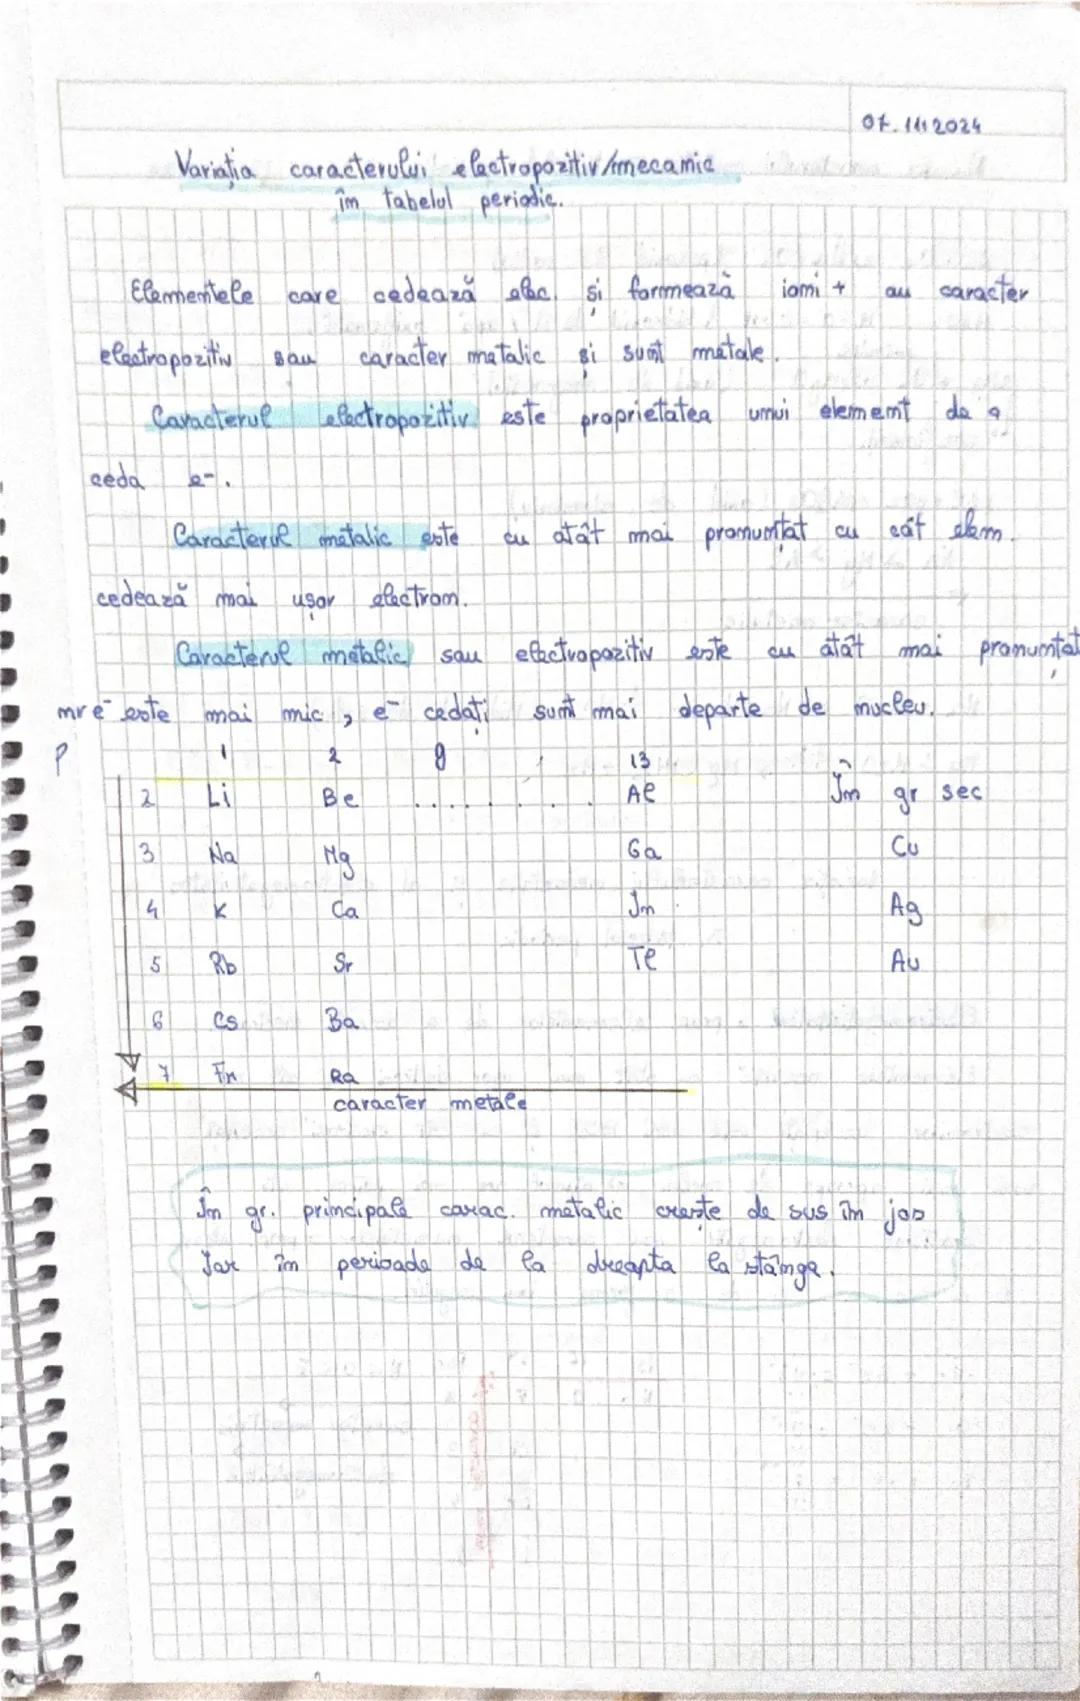 07.11.2024
Variația caracterului electropozitiv/mecanic
în tabelul periodic.
Elementele care cedează elec. și formează ioni + au caracter
electropozitiv sau caracter metalic și sunt metale.
Caracterul electropozitiv este proprietatea unui element de a
ceda e-.
Caracterul metalic este cu atât mai pronunțat cu cât elem.
cedează mai ușor electron.
Caracterul metalic sau electropozitiv este cu atât mai pronunțat
nr e- este mai mic, e- cedați sunt mai departe de nucleu.
P 1 2 13
2 Li Be ........ Al În gr sec
3 Na Mg Ga Cu
4 K Ca In Ag
5 Rb Sr Tl Au
6 Cs Ba
7 Fr Ra
caracter metale
În gr. principale carac. metalic crește de sus în jos
Iar în perioade de la dreapta la stânga.